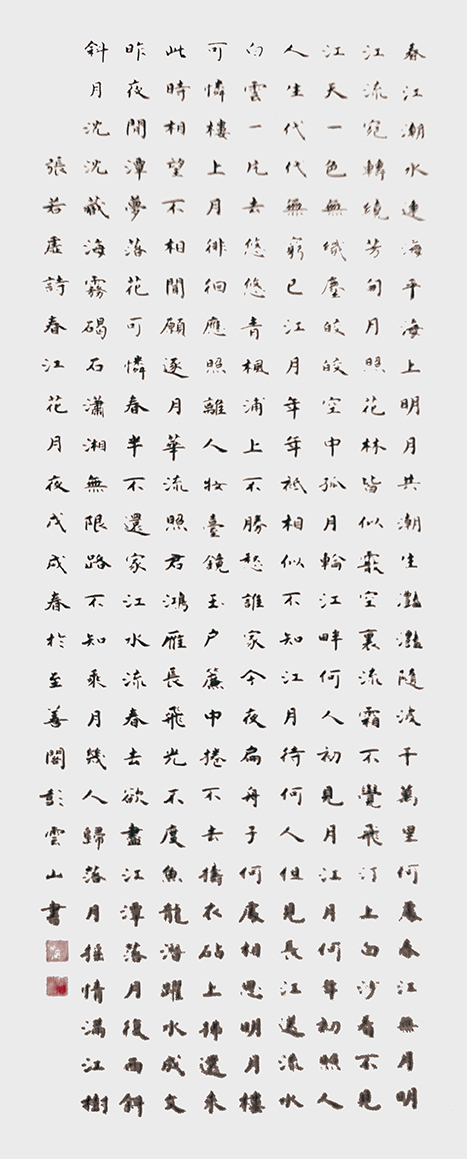 春江潮水連海平海上明月共潮生灩灩隨波千萬里何處春江無月明
江流宛轉繞芳甸月照花林皆似霰空裏流霜不覺飛汀上白沙看不見
江天一色無纖塵皎皎空中孤月輪江畔何人初見月江月何年初照人
人生代代無窮已江月年年祗相似不知江月待何人但見長江送流水
白雲一片去悠悠青楓浦上不勝愁誰家今夜扁舟子何處相思明月樓
可憐樓上月徘徊應照離人妝臺鏡玉戶簾中捲不去擣衣砧上拂還來
此時相望不相聞願逐月華流照君鴻雁長飛光不度魚龍潛躍水成文
昨夜閒潭夢落花可憐春半不還家江水流春去欲盡江潭落月復西斜
斜月沈沈藏海霧碣石瀟湘無限路不知乘月幾人歸落月搖情滿江樹
張若虛詩春江花月夜戊戌春於至善閣彭雲山書